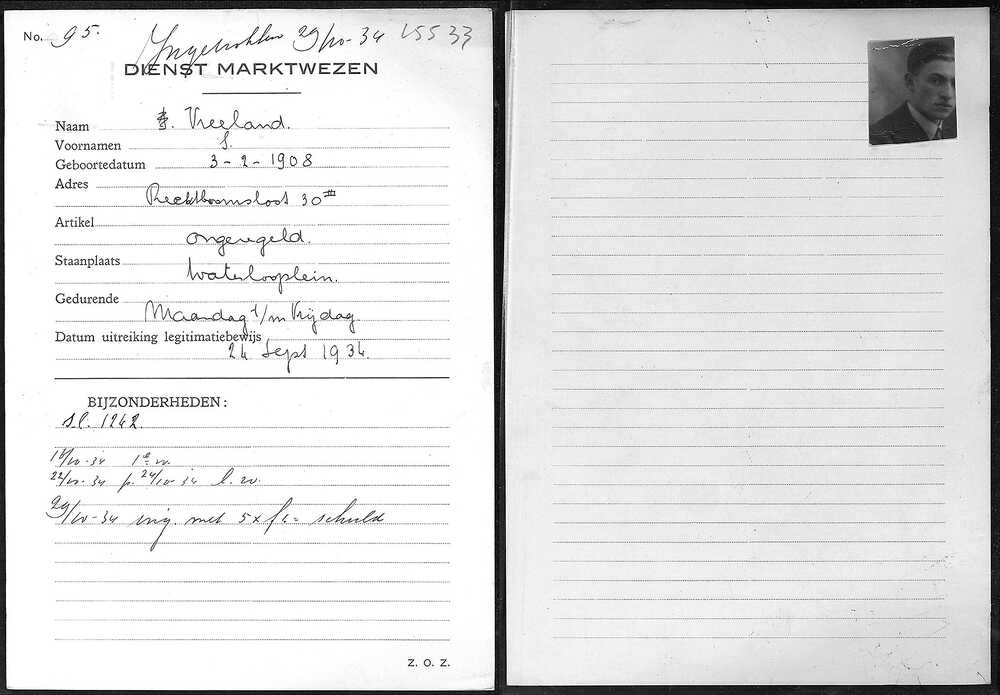 No. 95. Ingetrokken 29/10-34 15533
DIENST MARKTWEZEN
Naam S. Vreeland.
Voornamen S.
Geboortedatum 3-2-1908
Adres
Rechtboomsloot 30 III
Artikel
ongeregeld.
Staanplaats
Waterlooplein.
Gedurende
Maandag t/m Vrijdag.
Datum uitreiking legitimatiebewijs
24 Sept 1934.
BIJZONDERHEDEN:
S.l. 1242.
/10-34 1e w.
22/10-34 p. 24/10-34 l.w.
29/10-34 ing. met 5 x f schuld
Z. O. Z.